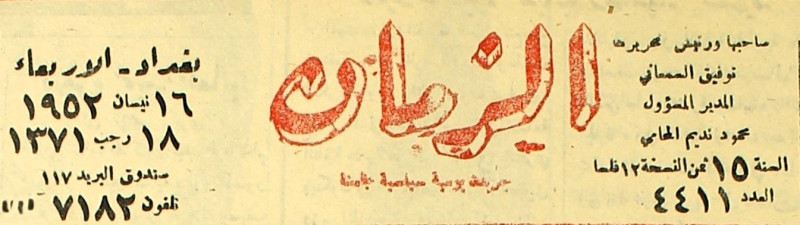 صاحبها ورئيس تحريرها
توفيق السمعاني
المدير المسؤول
محمود نديم المحامي
السنة ١٥ ثمن النسخة ١٢ فلسا
العدد ٤٤١١
الزمان
جريدة يومية سياسية جامعة
بغداد - الاربعاء
١٦ نيسان ١٩٥٢
١٨ رجب ١٣٧١
صندوق البريد ١١٧
تلفون ٧١٨٢